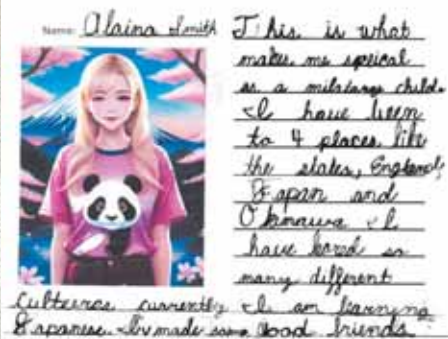 Name: Alaina Smith
This is what
makes me speical
as a milatary child.
I have been
to 4 places like
the states, England,
Japan and
Okinawa. I
have loved so
many different
cultures currently I am learning
Japanese. Iv made some good friends